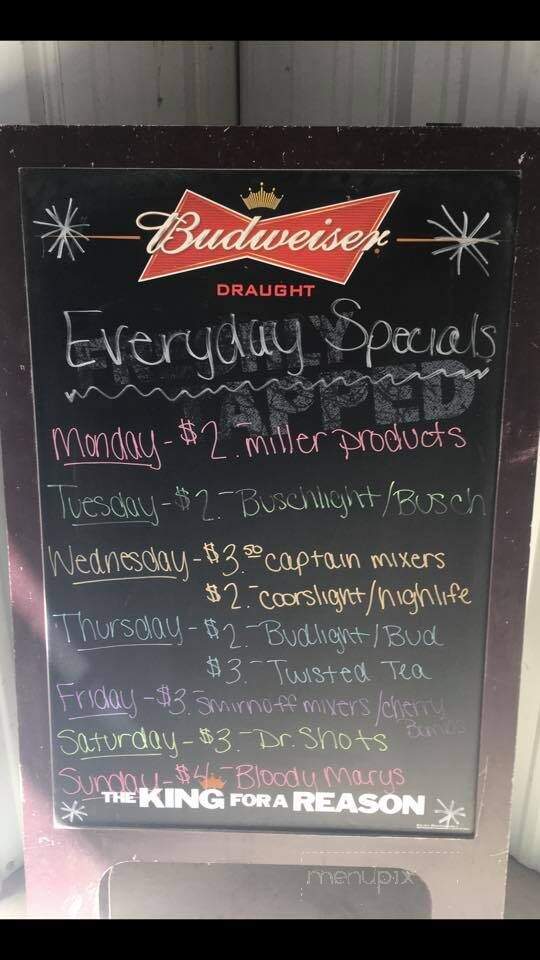 Budweiser
DRAUGHT
Everyday Specials
TAPPED
Monday - $2. miller products
Tuesday - $2.- Buschlight/Busch
Wednesday - $3.50 captain mixers
$2.- coorslight/highlife
Thursday - $2.- Budlight/Bud
$3.- Twisted Tea
Friday - $3. Smirnoff mixers/cherry
Bombs
Saturday - $3.- Dr. Shots
Sunday - $4.- Bloody Marys
THE KING FOR A REASON
menupix